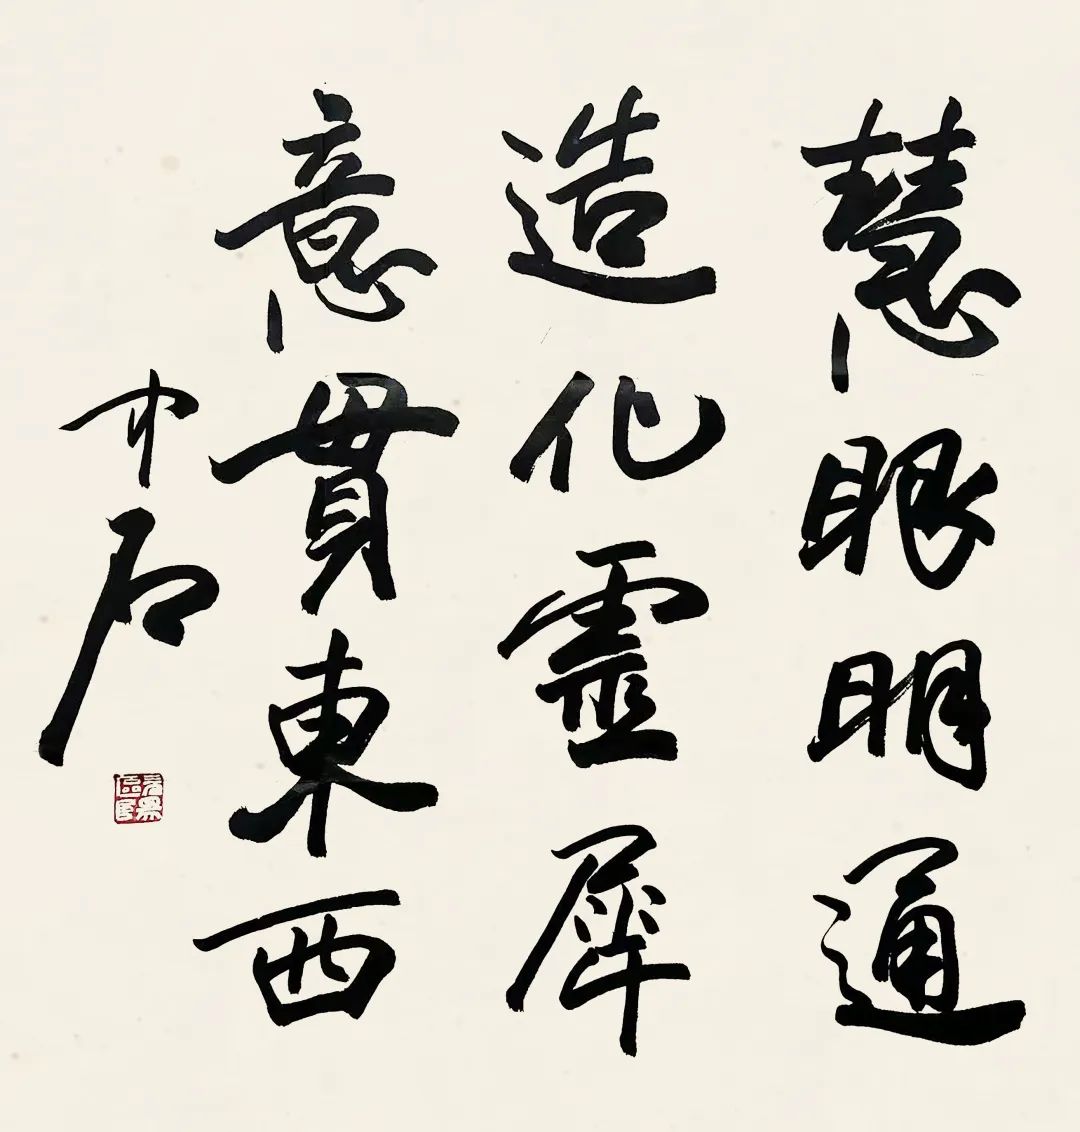 慧眼明通
造化靈犀
意貫東西
中石